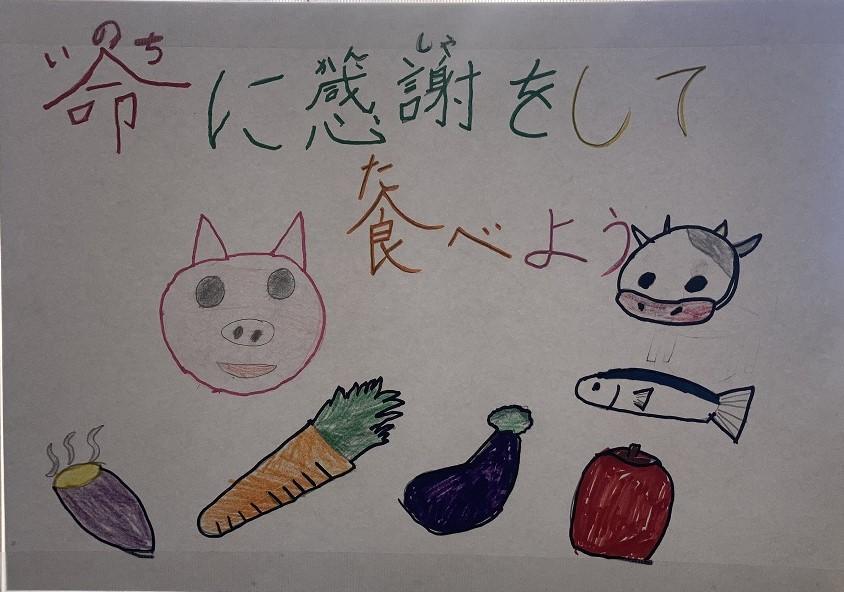 いのち かん しゃ
命に感謝をして
た
食べよう